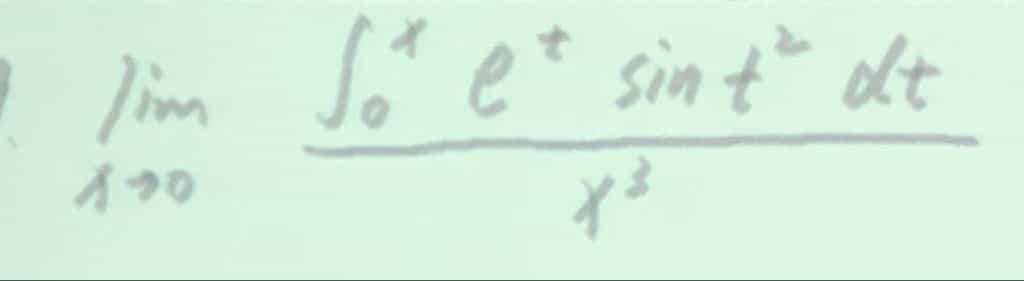 lim x→0 ∫₀ˣ eᵗ sin t² dt / x³